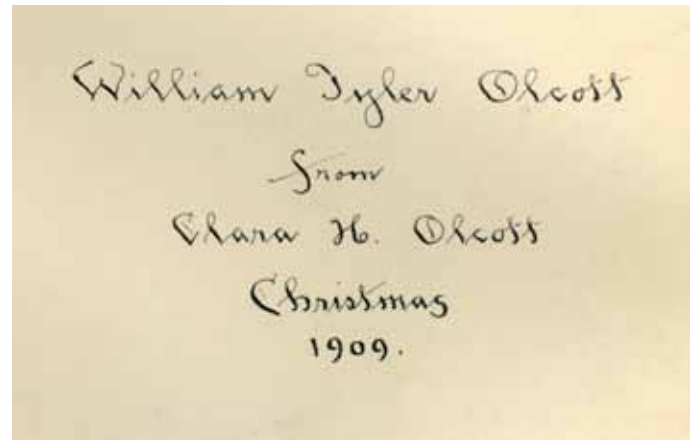 William Tyler Olcott
from
Clara H. Olcott
Christmas
1909.